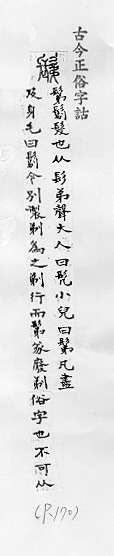 古今正俗字詁
鬀鬄髮也从髟弟聲大人曰髡小兒曰鬀凡盡
及身毛曰鬄今別製剃為之剃行而鬀篆廢剃俗字也不可从
(P.170)